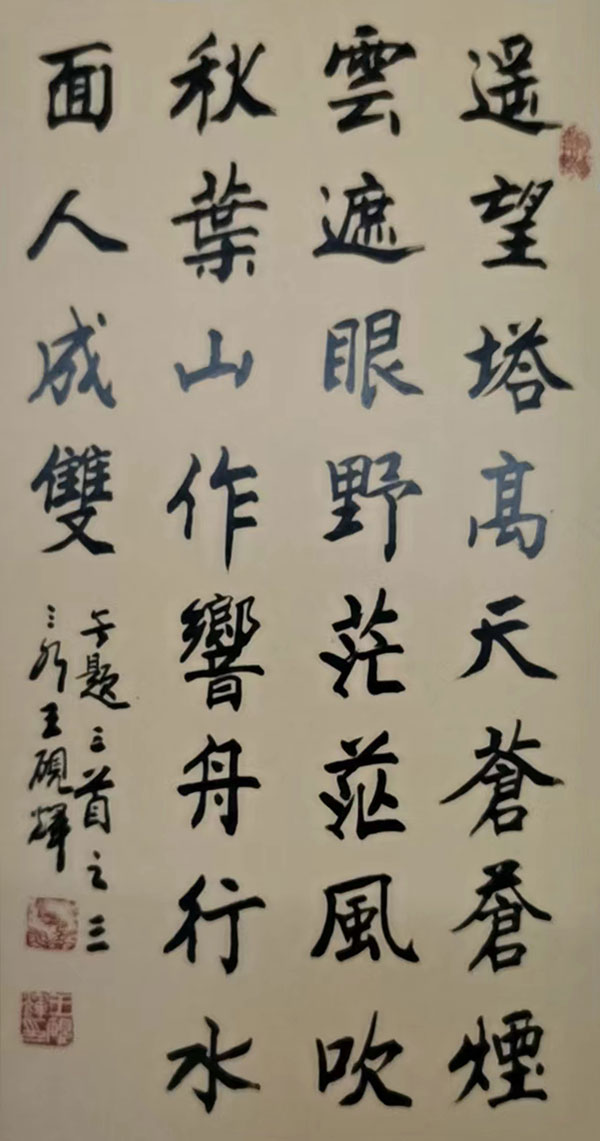 遥望塔高天蒼蒼煙
雲遮眼野茫茫風吹
秋葉山作響舟行水
面人成雙
无題三首之三
王硯輝